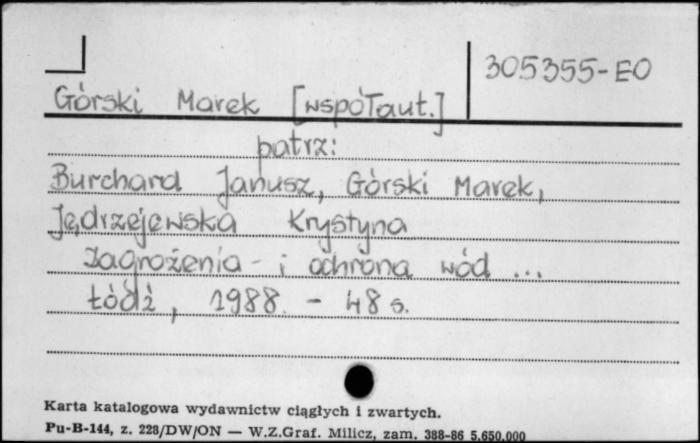 305355-EO
Górski Marek [współaut.]
patrz:
Burchard Janusz, Górski Marek,
Jędrzejewska Krystyna
Zagrożenia i ochrona wód ...
Łódź, 1988. - 48 s.
Karta katalogowa wydawnictw ciągłych i zwartych.
Pu-B-144, z. 228/DW/ON — W.Z.Graf. Milicz, zam. 388-86 5.650.000